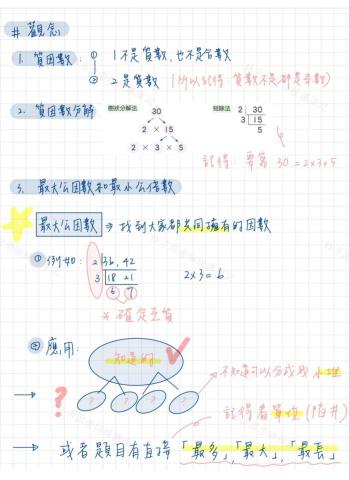 # 觀念
1. 質因數: ① 1不是質數, 也不是合數
② 2是質數 (所以記得 質數不是都是奇數)
2. 質因數分解
樹狀分解法
30
2 × 15
2 × 3 × 5
短除法
2 30
3 15
5
記得: 要寫 30 = 2×3×5
3. 最大公因數和最小公倍數
最大公因數 → 找到大家都共同擁有的因數
① 例如: 2 36, 42
3 18 21
6 7
2×3=6
* 確定互質
② 應用:
知道的
?
? ? ? ?
→ 不知道可以分成幾小
記得看單位 (陷井)
→ 或者題目有直接「最多」「最大」「最長」